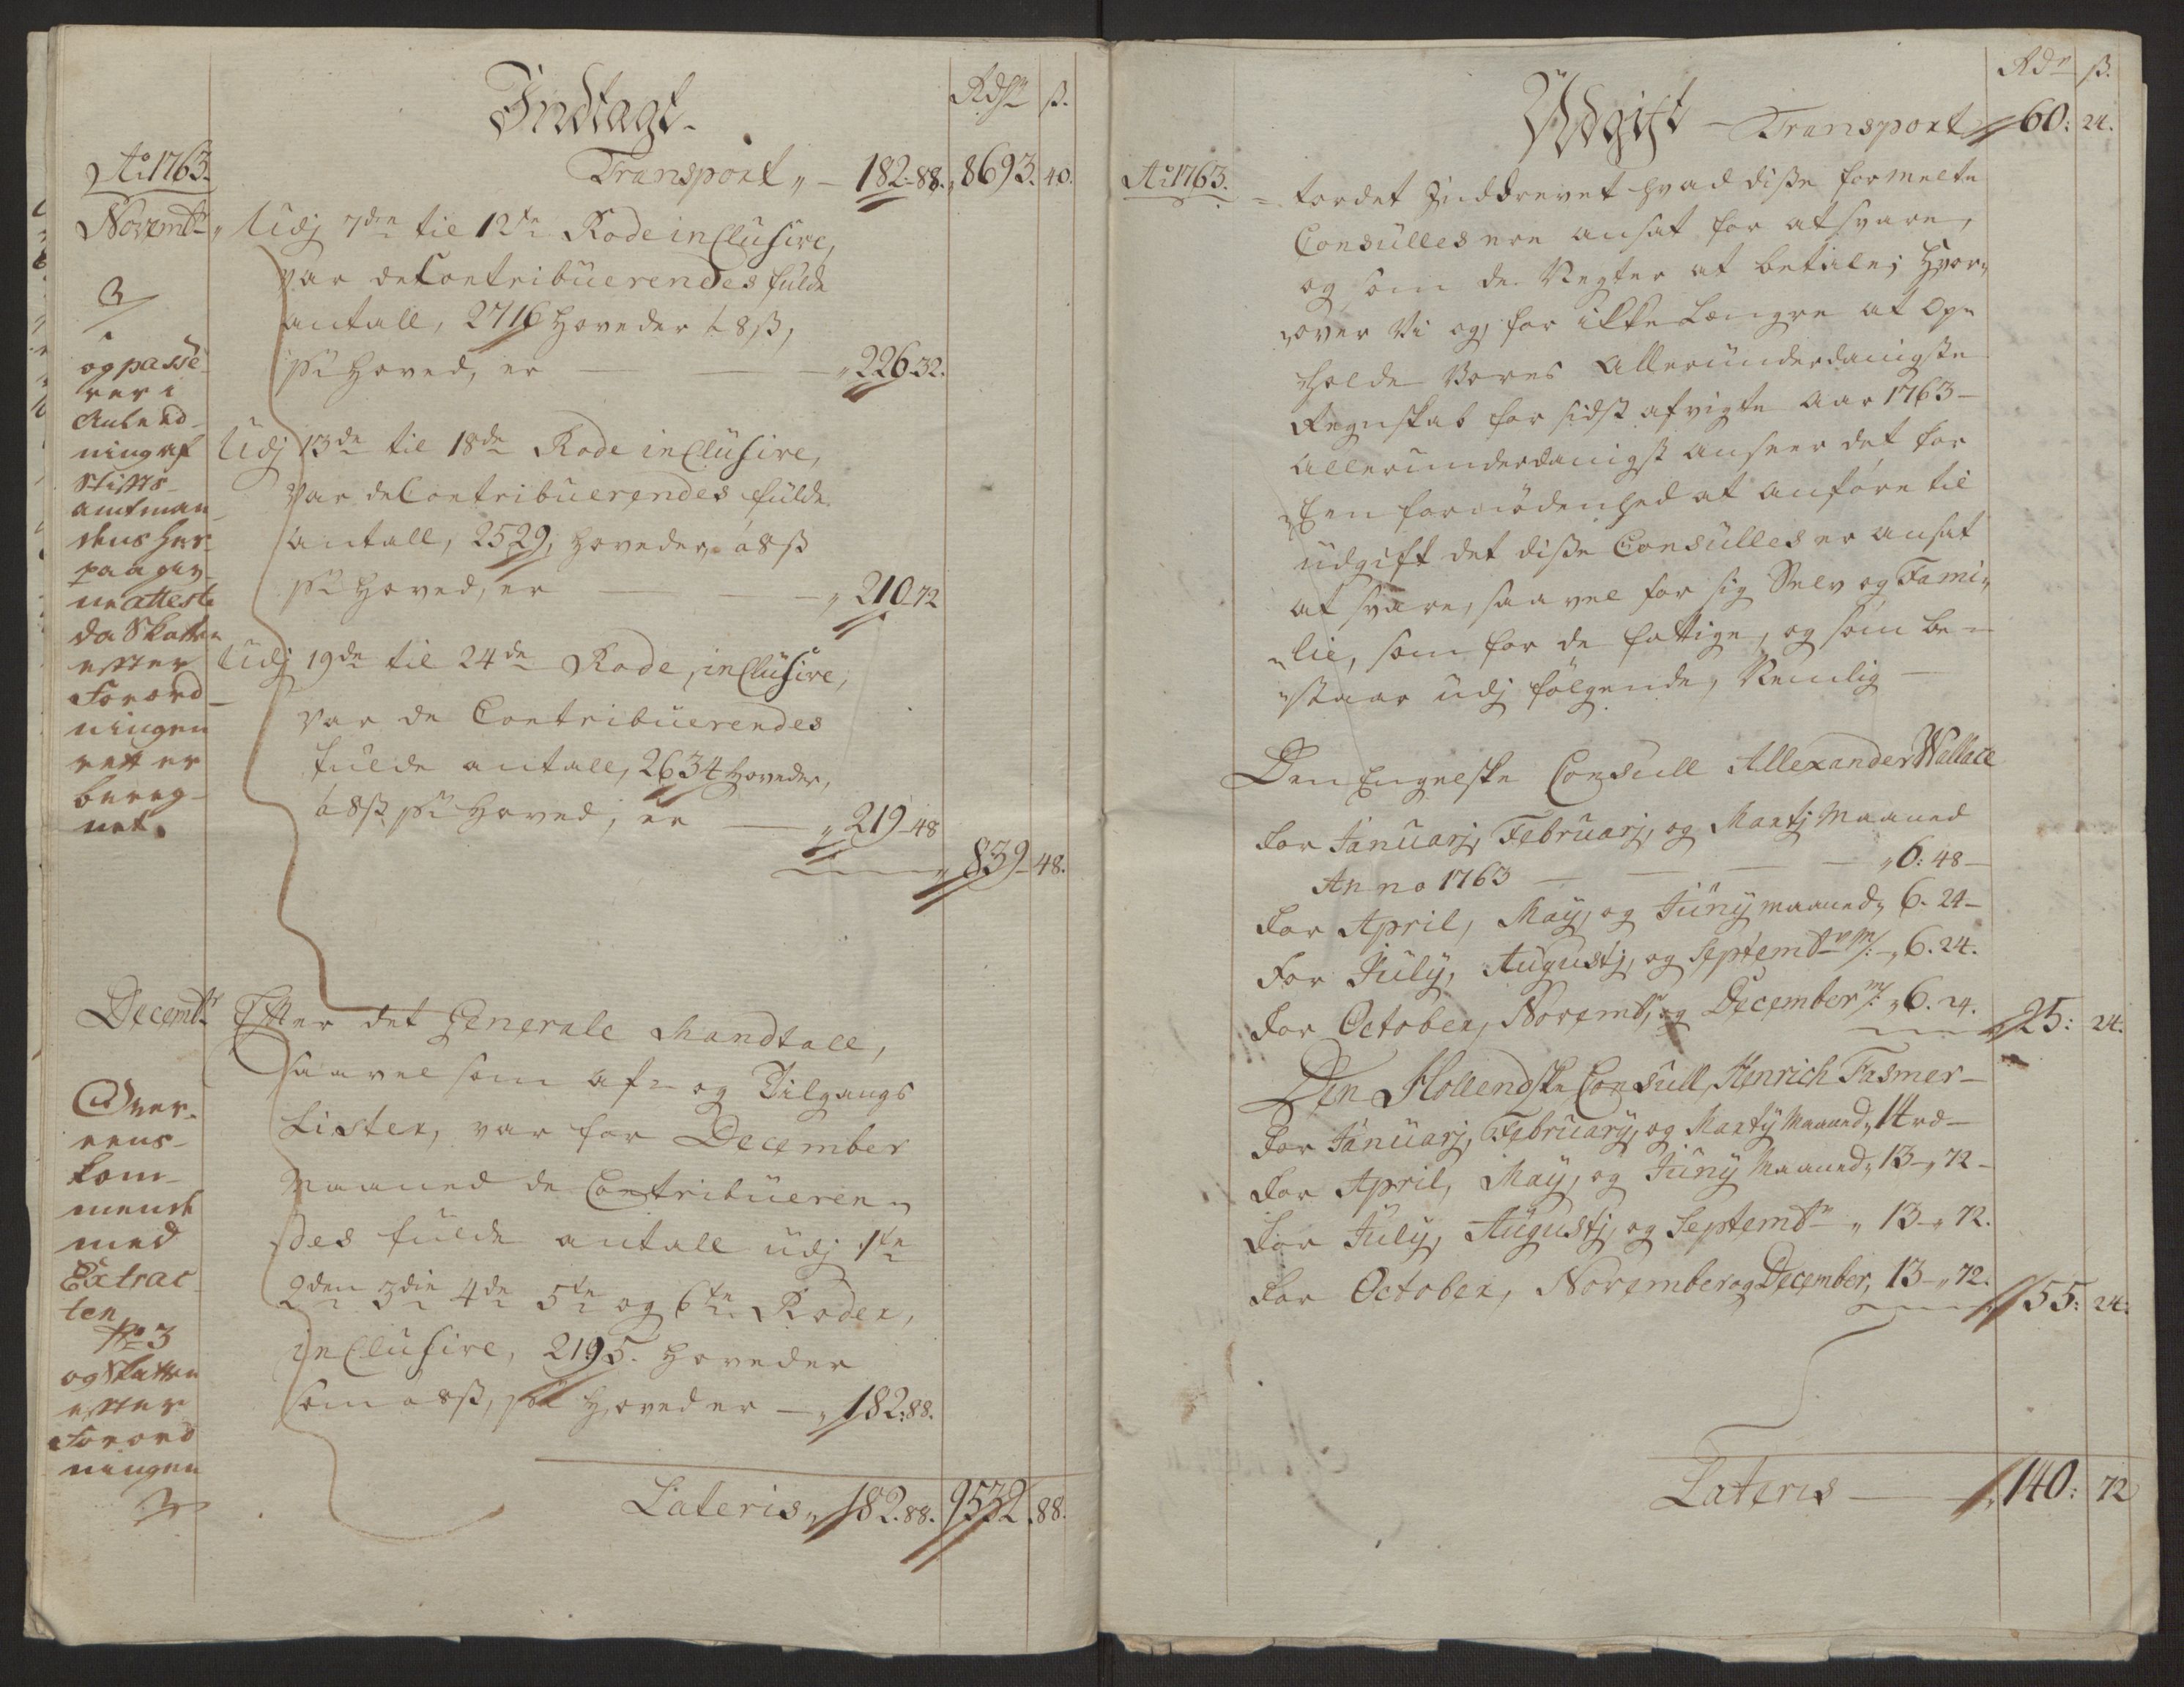 Indtagt
Rdlr ß.
Ao 1763.
Transport „ — 182-88. „8693. 40.
Novembr
Udj 7de til 12te Rode inclusive,
var de Contribuerendes fulde
antall, 2716 Hoveder à 8 ß,
pr Hoved, er — — „226-32.
og passe
rer i
Anleed-
ning af
Stifts-
amtman-
dens her-
paa giv-
ne attest
da Skatten
efter
Forord-
ningen
rett er
bereg-
net.
Udj 13de til 18de Rode inclusive,
var de Contribuerendes fulde
antall, 2529, Hoveder à 8 ß
pr Hoved, er — — „210-72
Udj 19de til 24de Rode, inclusive,
var de Contribuerendes
fulde antall, 2634 Hoveder,
à 8 ß pr Hoved, er — „219-48
„839-48.
Decembr
Efter det Generale Mandtall,
saavel som af- og Tilgangs
Lister, var for December
Maaned de Contribueren„
des fulde antall udj 1te
2den 3die 4de 5te og 6te Roder,
inclusive, 2195. Hoveder
som à 8 ß, pr Hoved er — „182:88.
Over-
eens-
kom-
mende
med
Extrac-
ten
No 3
og Skatten
efter
Forord
ningen
Lateris „ 182.88. 9532. 88.
Rdr ß.
Udgift — Transport „60: 24.
Ao 1763.
tordet Inddrevet hvad disse formelte
Consulles ere ansat for at svare,
og som de Negter at betale; Hvor„
„over Vi og, for ikke Længre at Op„
„holde Vores Allerunderdanigste
Regnskab for sidst afvigte Aar 1763—
allerunderdanigst anseer det for
Een fornødenhed at anføre til
udgift det disse Consulles er ansat
at svare, saavel for sig Selv og Fami„
„lie, som for de fattige, og som be„
„staar udj følgende, Nemlig —
Den Engelske Consull Allexander Wallace
For Januarj, Februarj, og Martj Maaned
Anno 1763 — — — „6: 48—
For April, May, og Juny Maaned „ 6. 24—
For July, Augustj, og Septembr M: „ 6. 24.
For October, Novembr, og December M: „ 6. 24.
„25: 24.
Den Hollendske Consull, Henrich Fasmer—
For Januarj, Februarÿ, og Martÿ Maaned „ 14 rd—
For April, May, og Juny Maaned „ 13 „ 72—
For July, Augustj, og Septembr „ 13 „ 72.
For October, November og December, 13 „ 72.
„55: 24:
Lateris — „140: 72